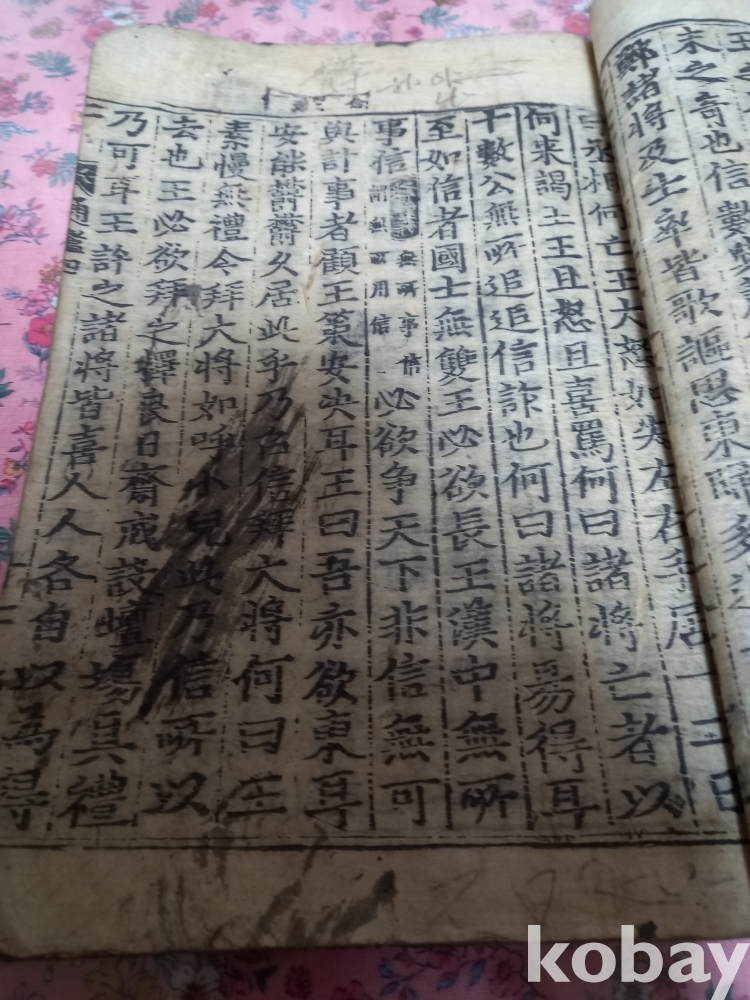 末之奇也信數
鄭諸將及士卒皆歌謳思東歸多道
丞相何亡王大怒如失左右手居一二日
何来謁上王且怒且喜罵何曰諸將亡者以
十數公無所追追信詐也何曰諸將易得耳
至如信者國士無雙王必欲長王漢中無所
事信 無所事信 謂無所用信 必欲争天下非信無可
與計事者顧王策安决耳王曰吾亦欲東耳
安能鬱鬱久居此乎乃召信拜大將何曰王
素慢無禮今拜大將如呼小兒此乃信所以
去也王必欲拜之擇良日齋戒設壇場具禮
乃可耳王許之諸將皆喜人人各自以爲得
通鑑四
kobay